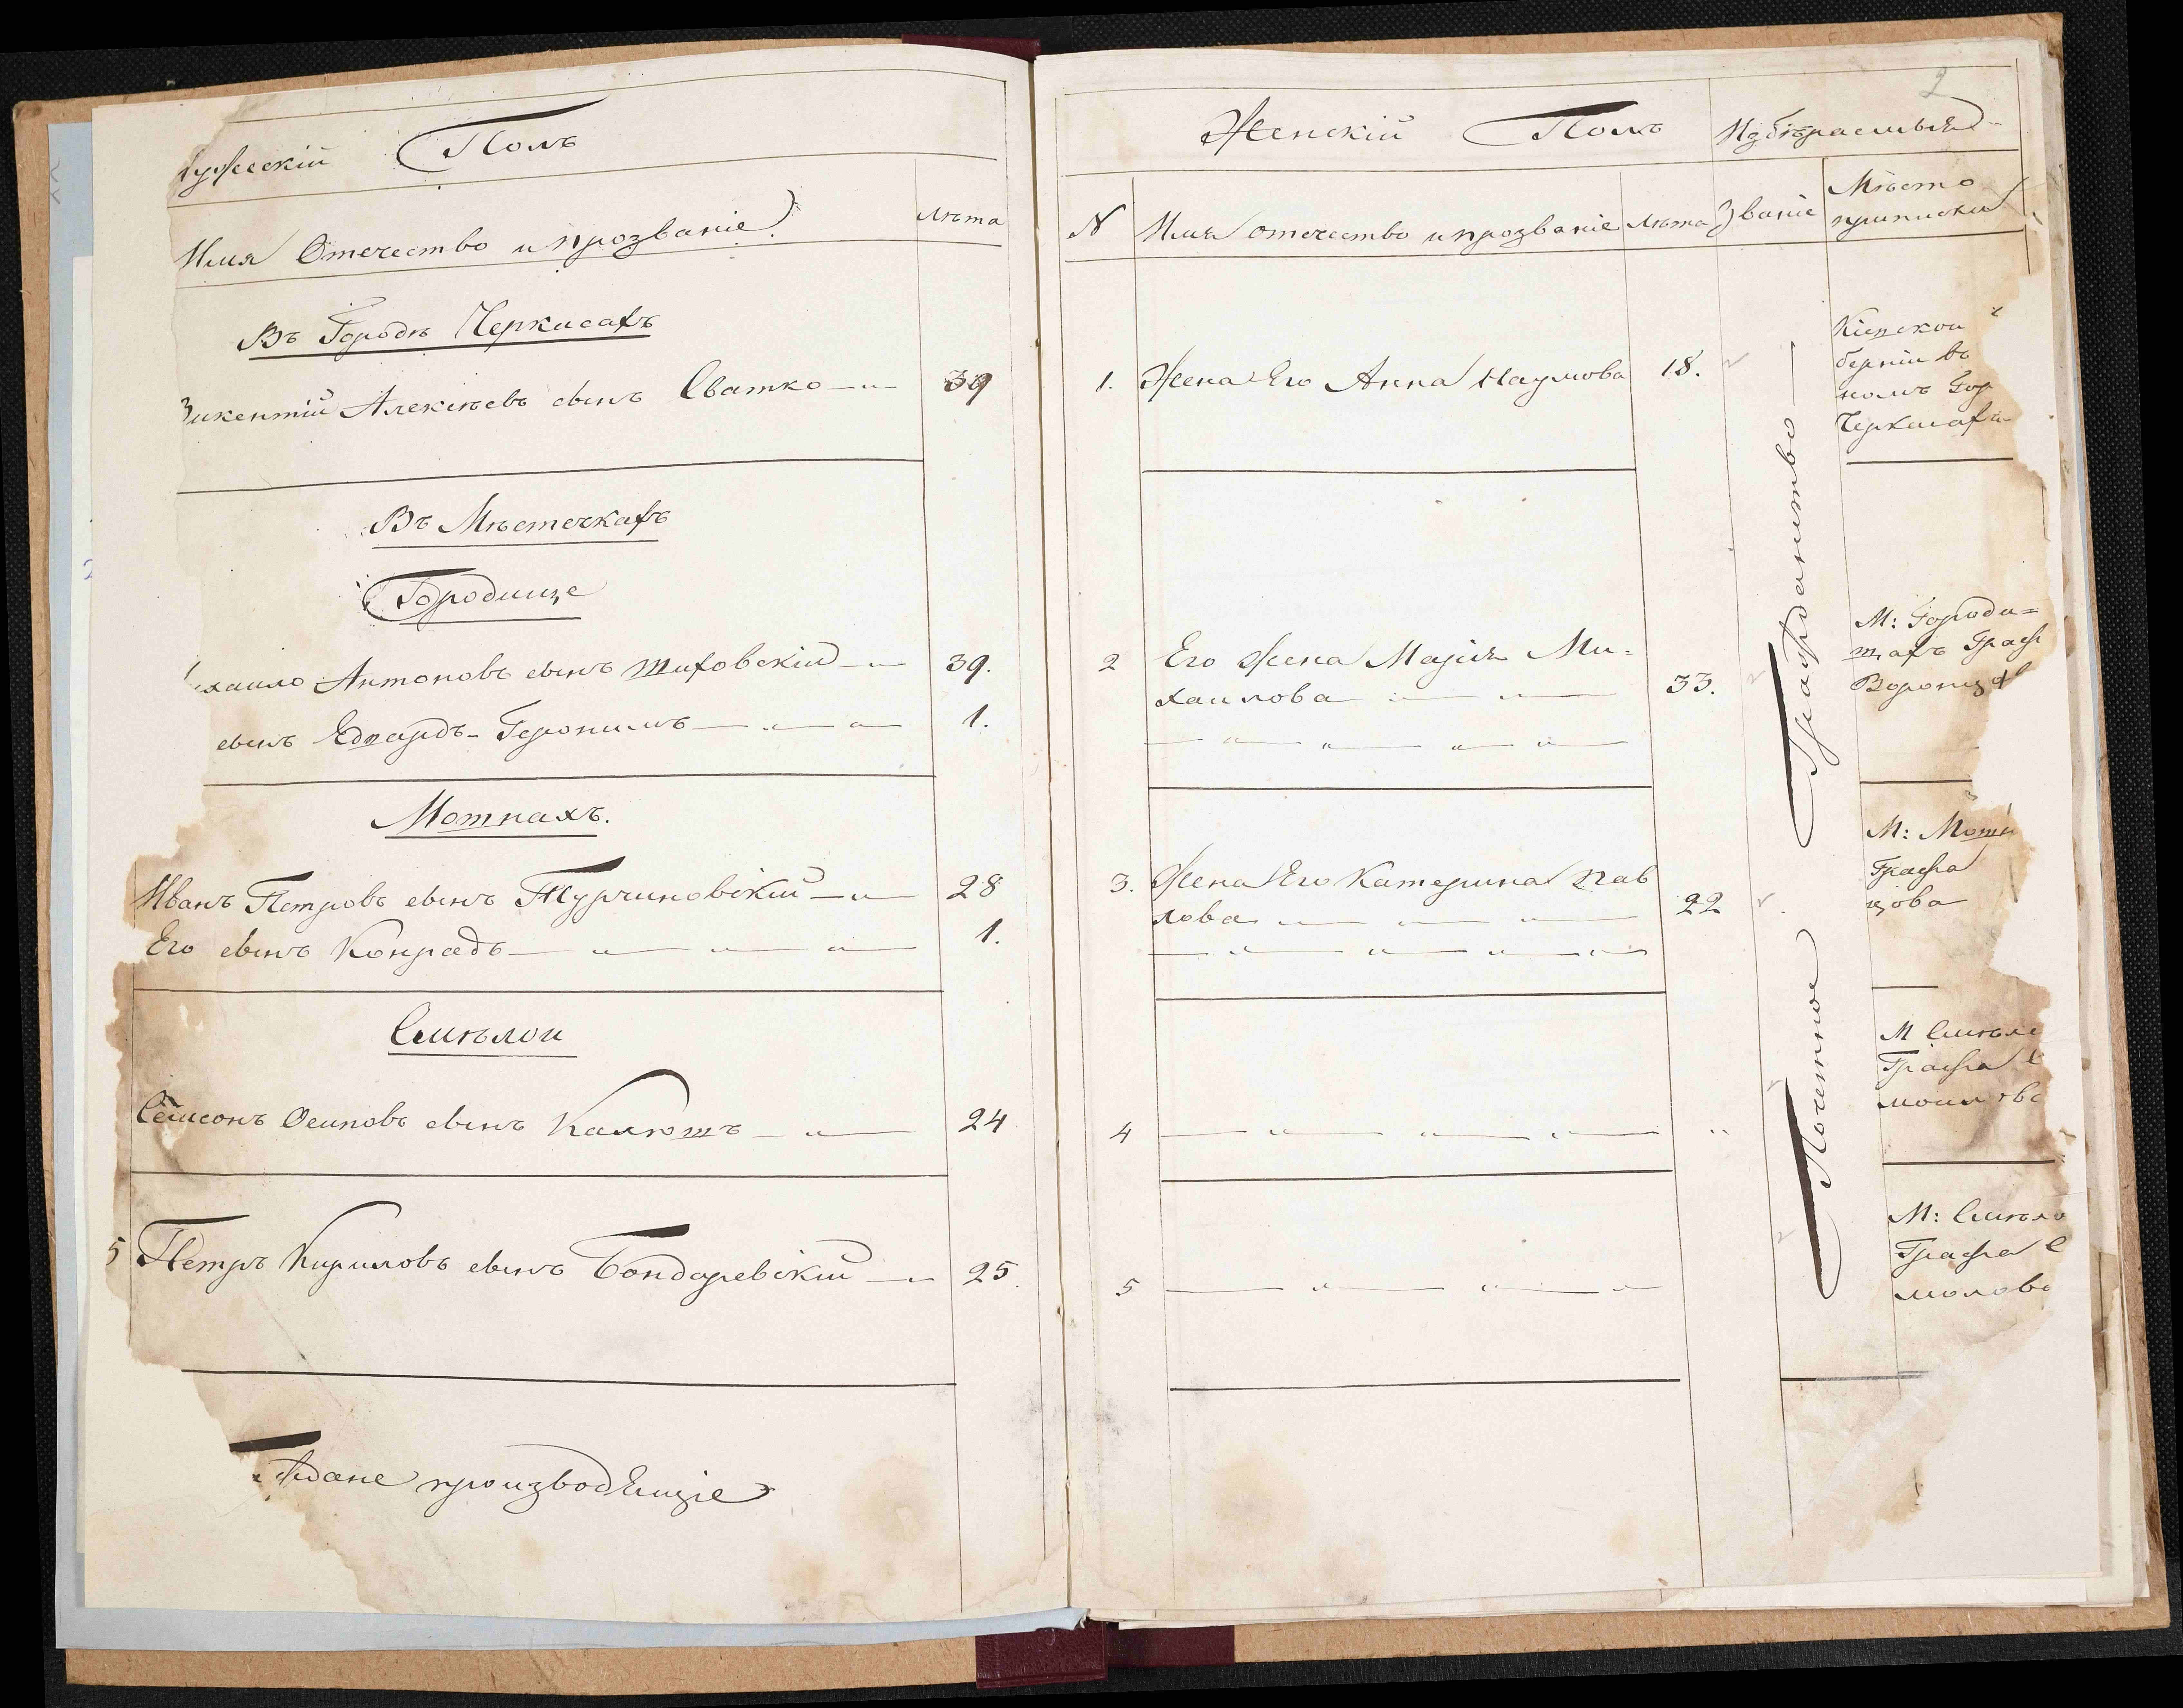 ужескій Полъ
Имя Отечество и прозваніе
Лѣта
Въ Городѣ Черкасахъ
икентій Алексѣевъ сынъ Сватко 39
Въ Мѣстечкахъ
Городище
хаило Антоновъ сынъ Шиховскій 39.
сынъ Едвардъ-Геронимъ 1.
Мотнахъ.
Иванъ Петровъ сынъ Турчиновскій 28
Его сынъ Конрадъ 1.
Смѣлой
Самсонъ Осиповъ сынъ Калютъ 24
5 Петръ Кириловъ сынъ Бондаревскій 25.
ждане производящіе
2
Женскій Полъ
Избираемыя
N Имя отечество и прозваніе Лѣта Званіе
Мѣсто
приписки
1. Жена Его Анна Наумова 18.
Кіевской
берніи въ
номъ Гор
Черкасахъ
2 Его жена Марія Ми-
хаилова 33.
М: Городи=
щахъ Граф
Воронцов
3. Жена Его Катерина Пав
лова 22
М: Мотн
Графа
цова
4
М Смѣле
Графа
5
М: Смѣло
Графа С
молова
Почетное Гражданство